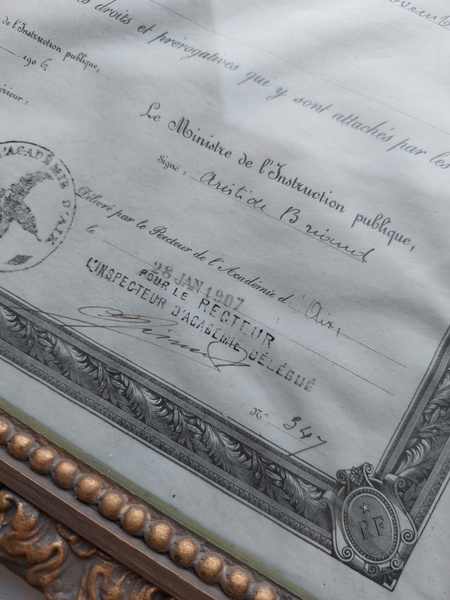 droits et prérogatives qui y sont attachés par les
de l'Instruction publique,
190 6
Le Ministre de l'Instruction publique,
Signé : Aristide Briand
L'ACADÉMIE D'AIX
Délivré par le Recteur de l'Académie d'Aix,
le 28 JAN 1907
POUR LE RECTEUR
L'INSPECTEUR D'ACADÉMIE DÉLÉGUÉ
N° 347
RF